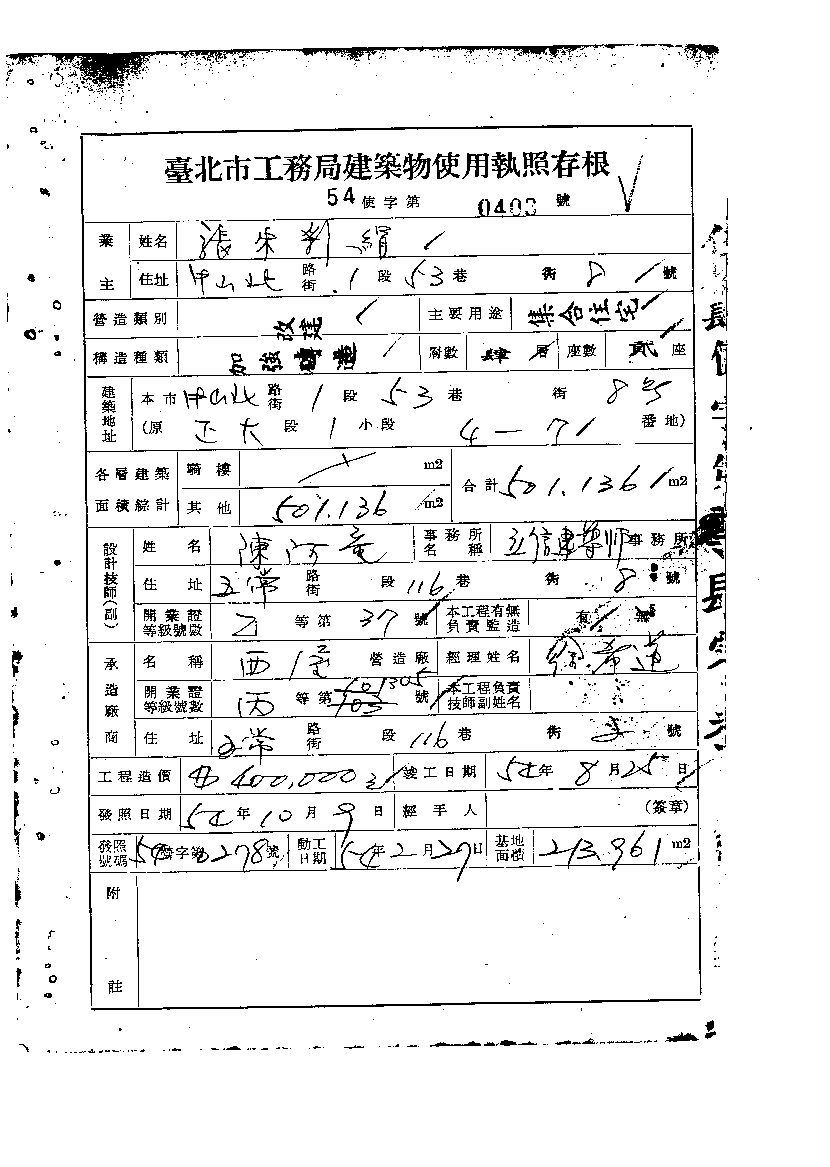 臺北市工務局建築物使用執照存根
54使字第 0403 號
業主 姓名 張朱 絹
住址 中山北路街 1段 53巷 街 8號
營造類別 改建 主要用途 集合住宅
構造種類 加強磚造 層數 肆層 座數 貳座
建築地址 本市 中山北路街 1段 53巷 街 8号
(原 正大段 1小段 4-71 番地)
各層建築面積綜計 騎樓 m2 合計 501.136 m2
其他 501.136 m2
設計技師(副) 姓名 陳河竜 事務所名稱 五信建築師事務所
住址 五常路街 段 116巷 街 8號
開業證等級號數 乙等第 37號 本工程有無負責監造 有 無
承造廠商 名稱 西 營造廠 經理姓名 徐希蓮
開業證等級號數 丙等第 號 本工程負責技師副姓名
住址 五常路街 段 116巷 街 號
工程造價 400,000 竣工日期 54年 8月 25日
發照日期 54年 10月 9日 經手人 (簽章)
發照號碼 54營字第0278號 動工日期 54年 2月 27日 基地面積 213.961 m2
附註